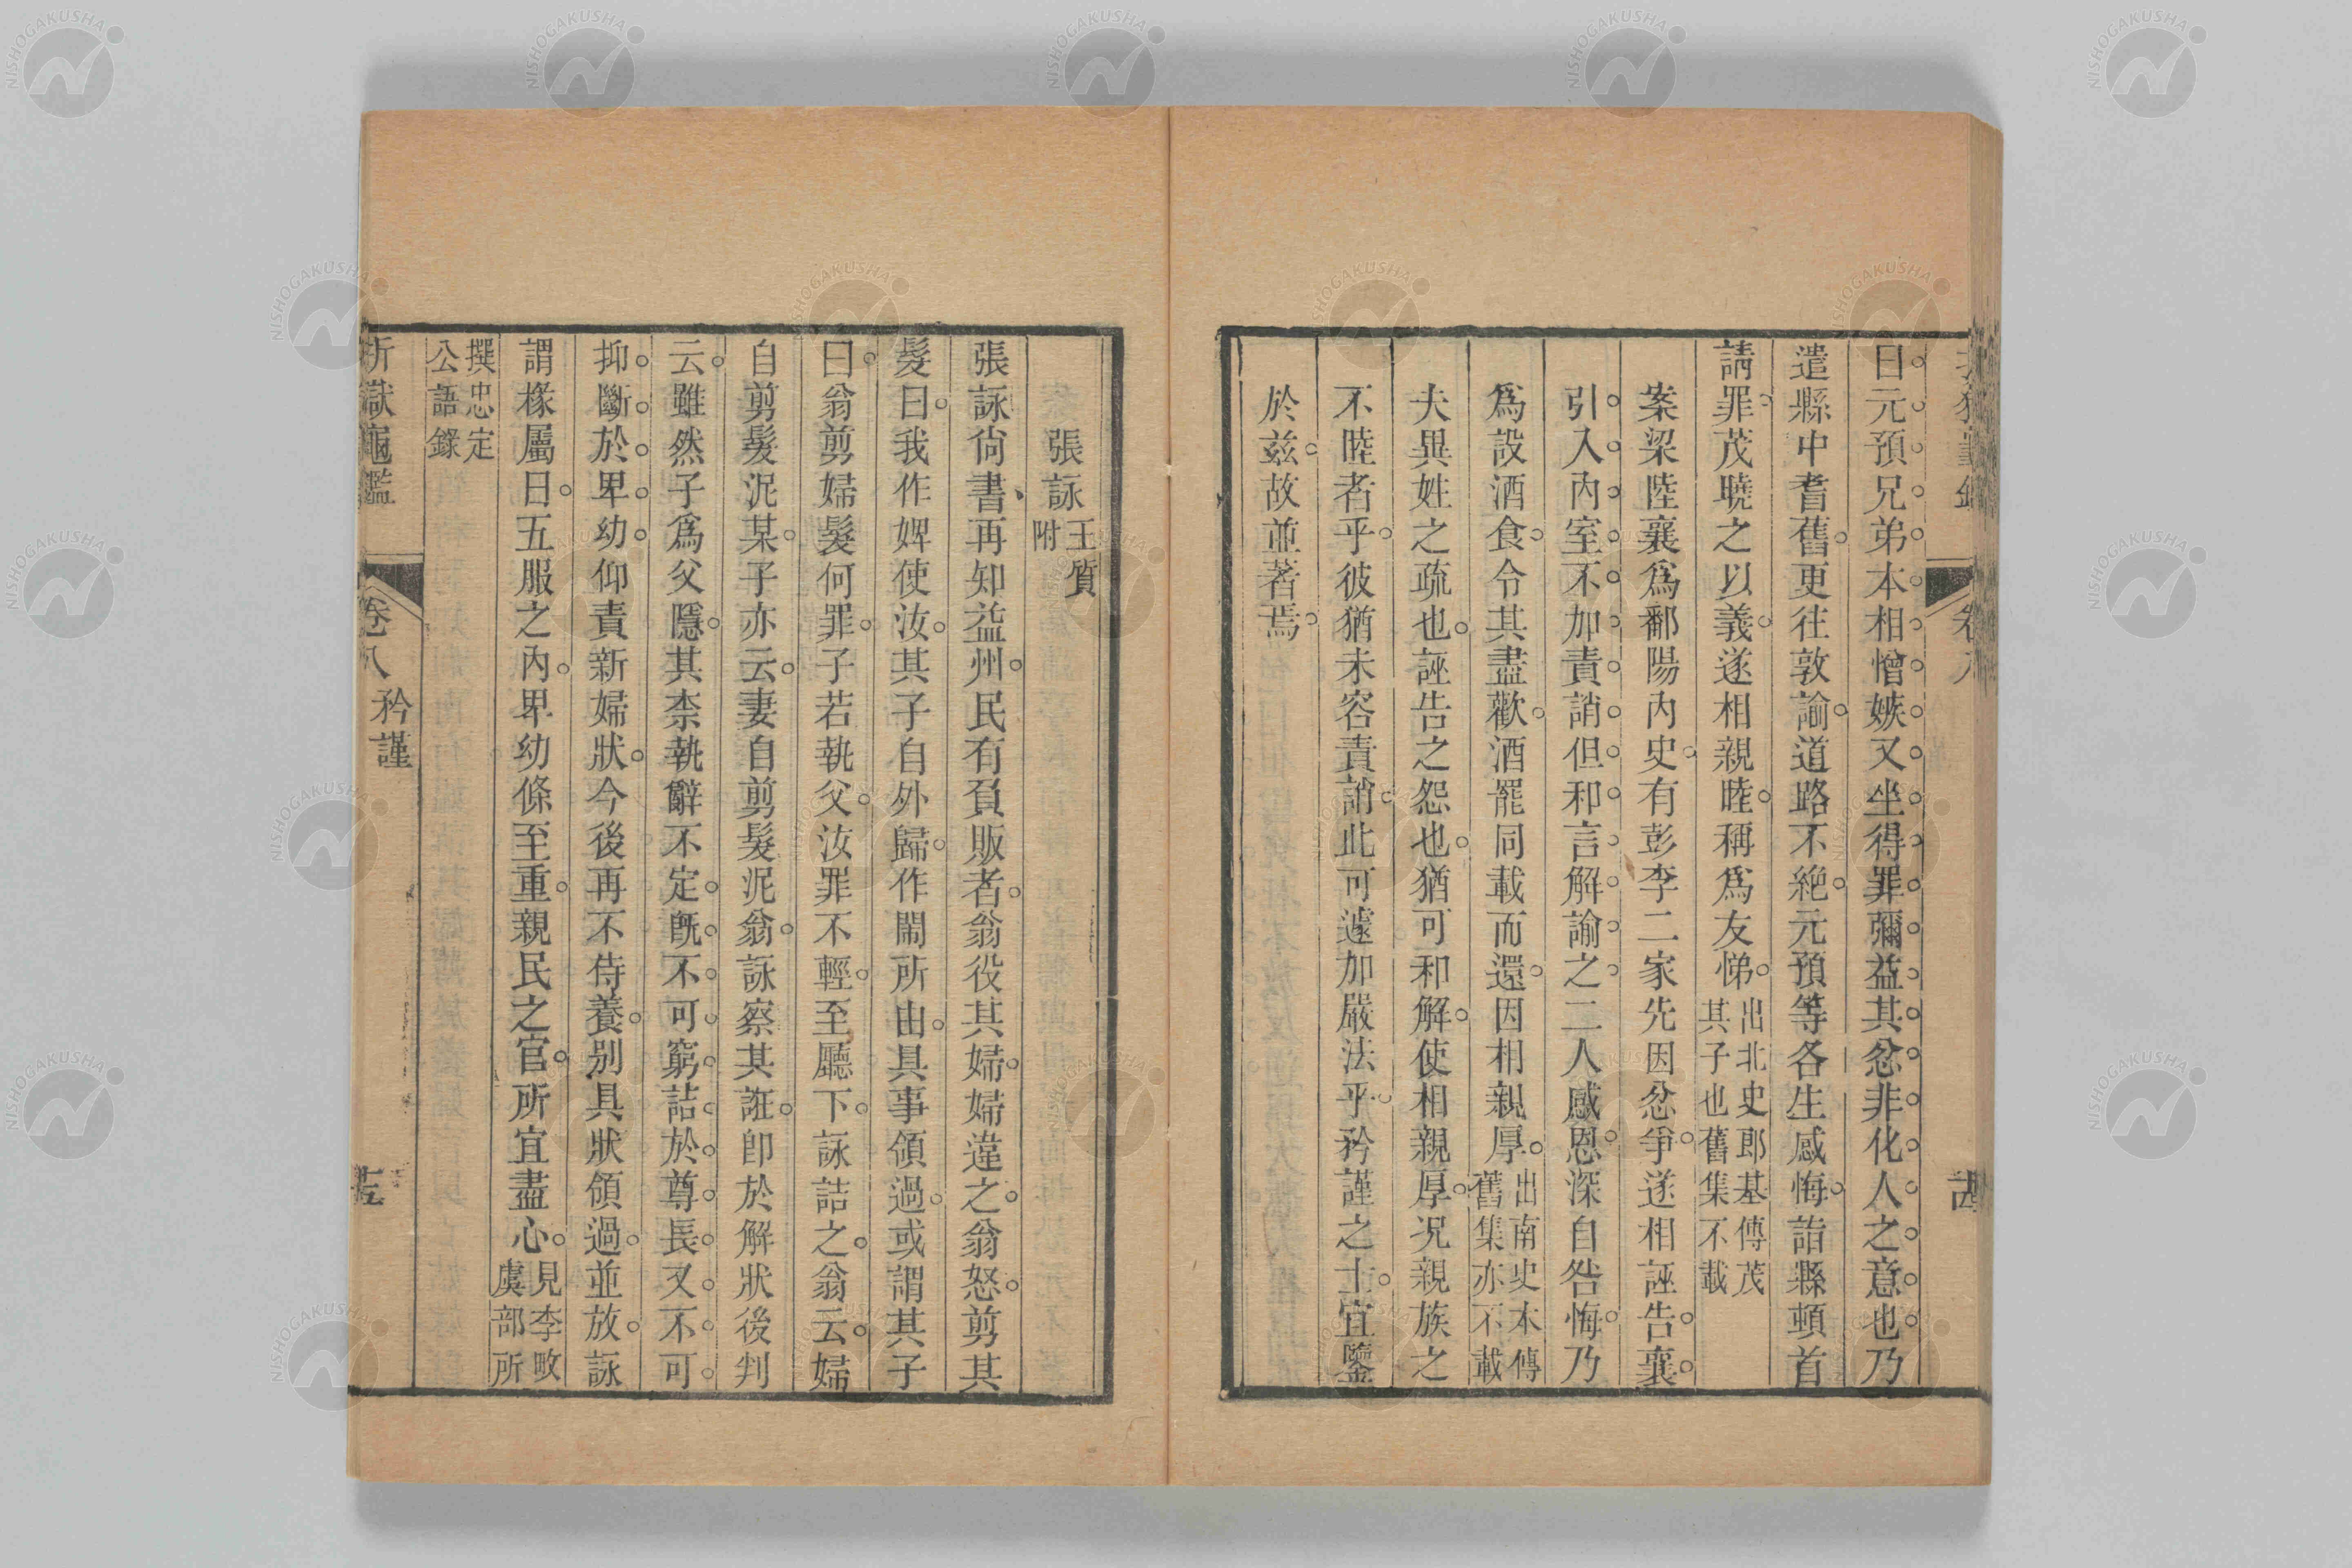 曰元預兄弟本相憎嫉又坐得罪彌益其忿非化人之意也乃
遣縣中耆舊更往敦諭道路不絶元預等各生感悔詣縣頓首
請罪茂曉之以義遂相親睦稱爲友悌出北史郎基傳茂其子也舊集不載
案梁陸襄爲鄱陽內史有彭李二家先因忿爭遂相誣告襄
引入內室不加責誚但和言解諭之二人感恩深自咎悔乃
爲設酒食令其盡歡酒罷同載而還因相親厚出南史本傳舊集亦不載
夫異姓之疏也誣告之怨也猶可和解使相親厚况親族之
不睦者乎彼猶未容責誚此可遽加嚴法乎矜謹之士宜鑒
於兹故並著焉
張詠王質附
張詠尙書再知益州民有負販者翁役其婦婦違之翁怒剪其
髮曰我作婢使汝其子自外歸作鬧所由具事領過或謂其子
曰翁剪婦髮何罪子若執父汝罪不輕至廳下詠詰之翁云婦
自剪髮泥某子亦云妻自剪髮泥翁詠察其誑卽於解狀後判
云雖然子爲父隱其柰執辭不定旣不可窮詰於尊長又不可
抑斷於卑幼仰責新婦狀今後再不侍養别具狀領過並放詠
謂椽屬曰五服之內卑幼條至重親民之官所宜盡心見李畋虞部所
撰忠定公語錄
折獄龜鑑
卷八 矜謹
十五